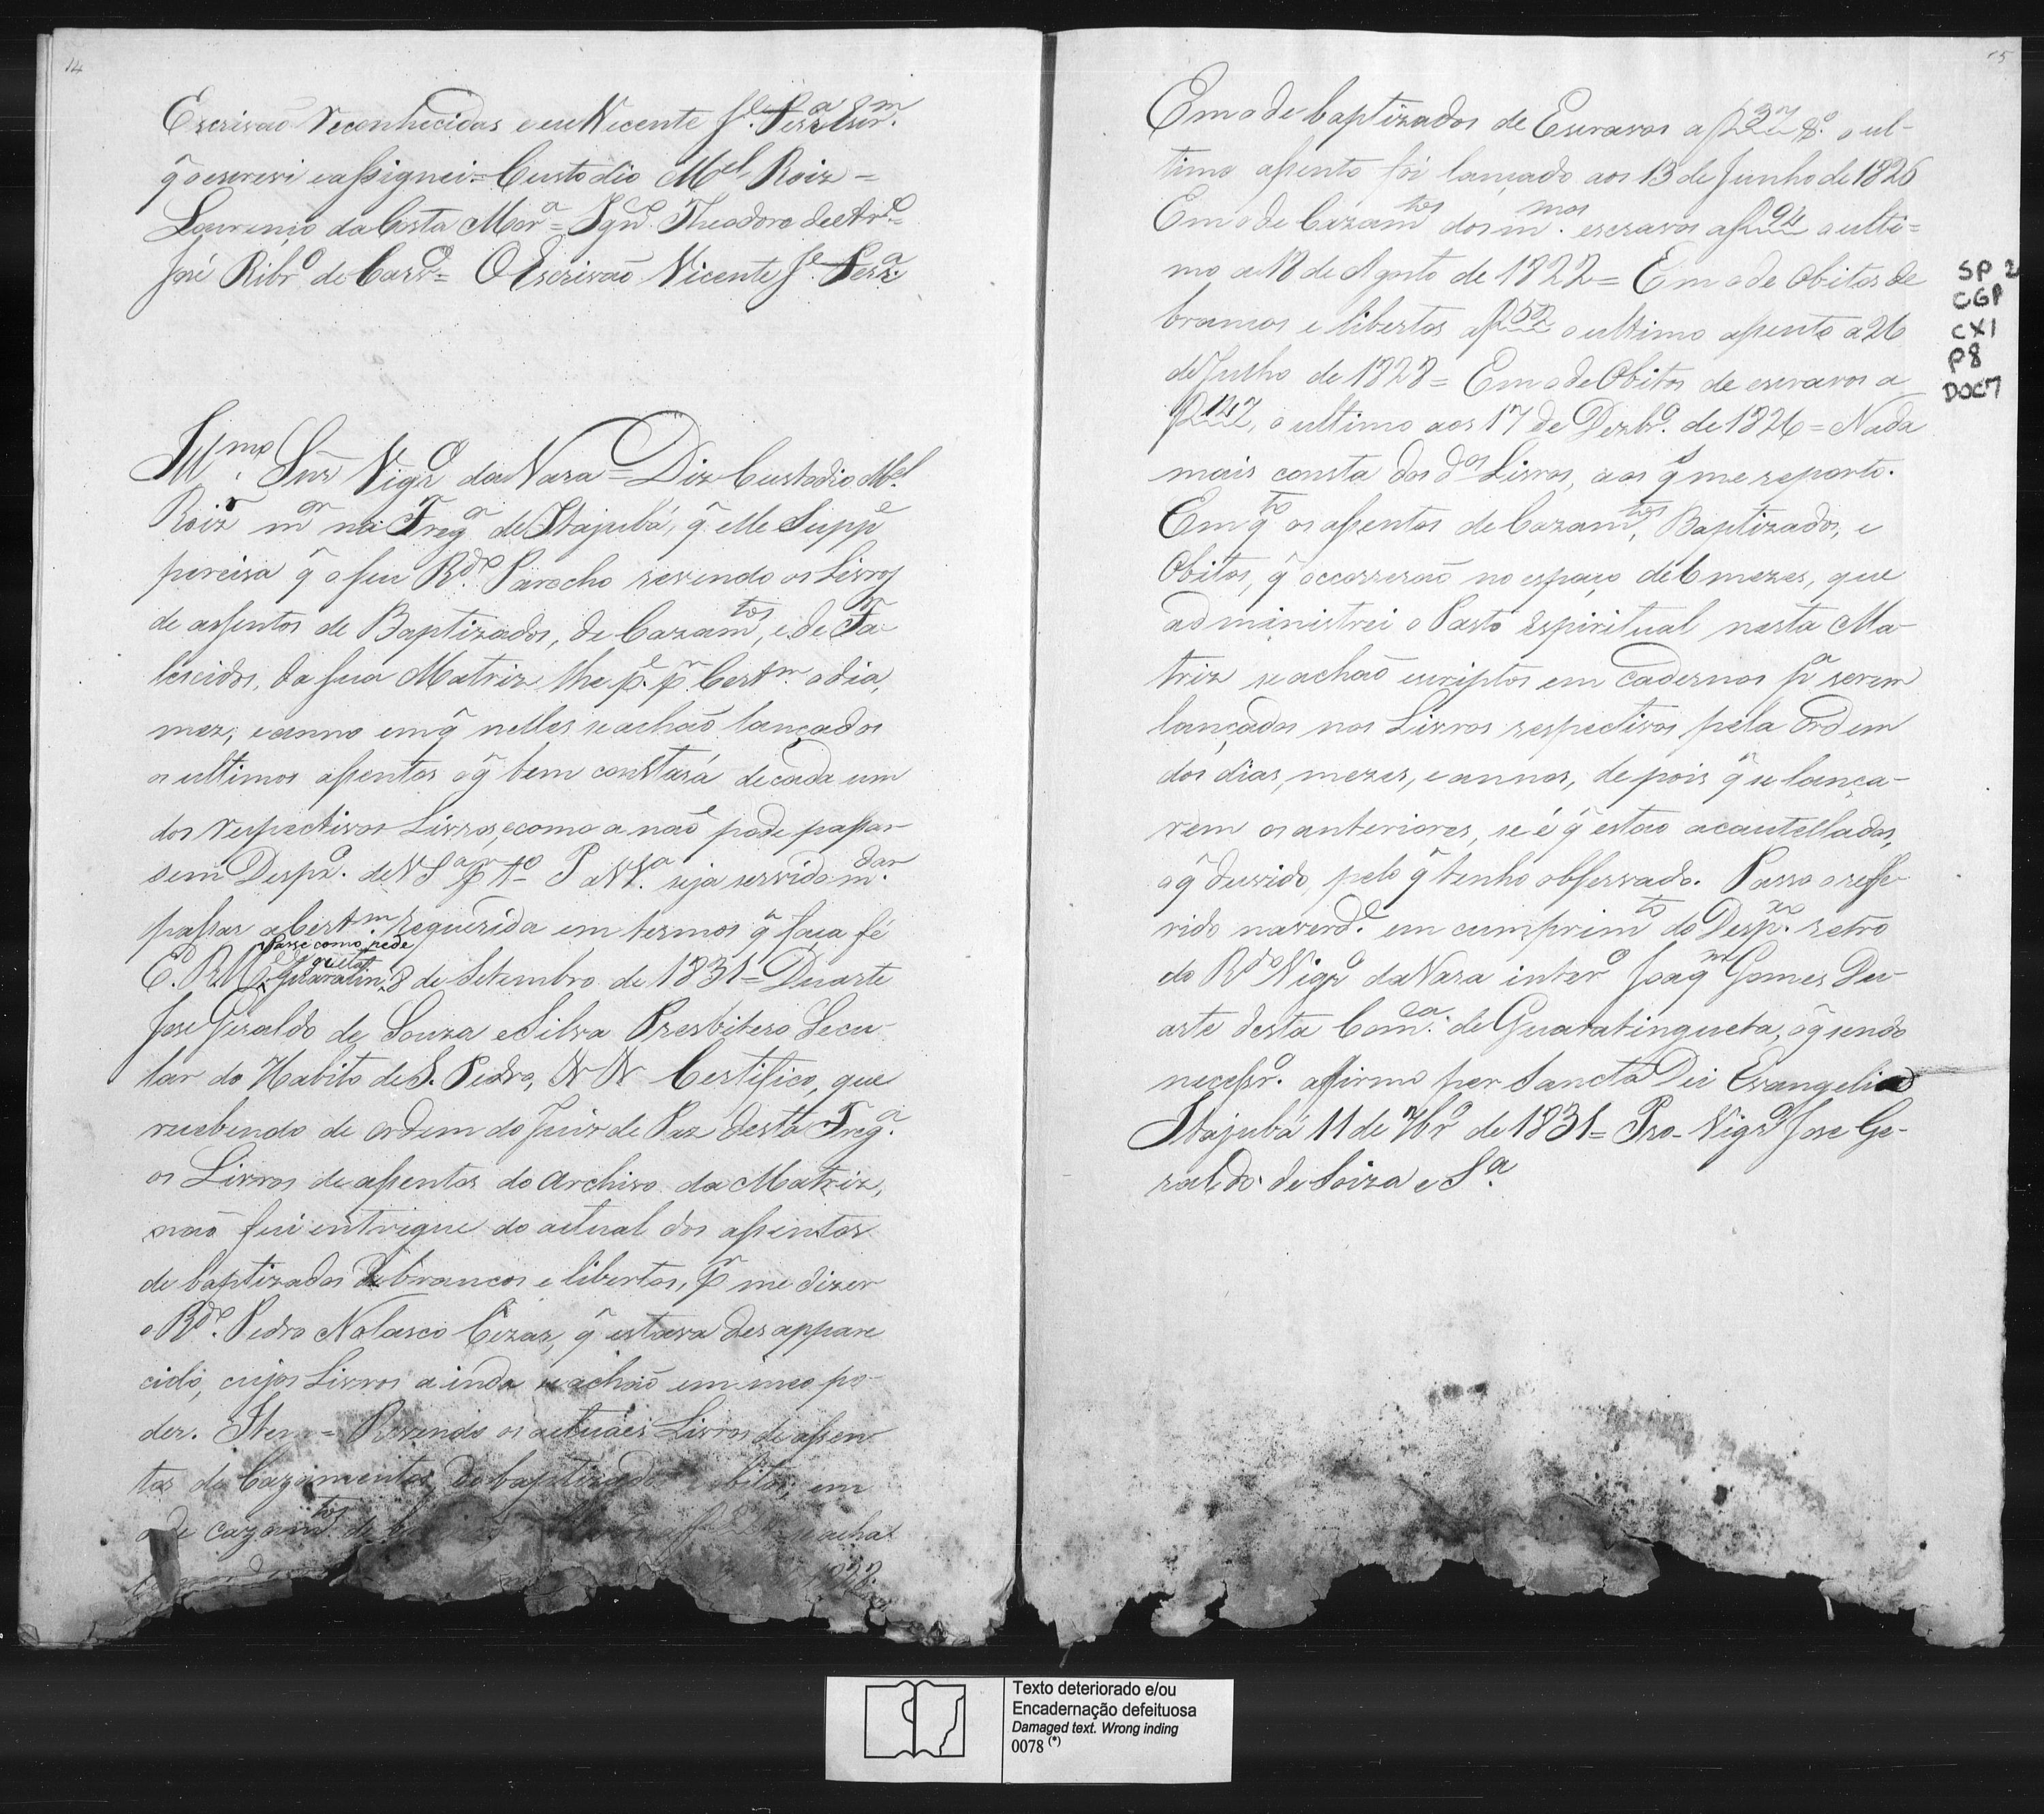 14
Escrivaõ reconhecidas e eu Vicente Je. Ferra. Escrm.
q̃ o escrevi e assignei = Custodio Mel. Roiz =
Lourenço da Costa Mora. = Igncо. Theodoro de Aro. =
José Ribro. de Carvo. = O Escrivaõ Vicente Je. Ferra.
Illmo. Snr̃ Vigro. da Vara = Diz Custodio Mel.
Roiz mor. na Frega. de Itajubá, q̃ elle Suppe.
percisa q̃ o seu Rdo. Parocho revendo os Livros
de assentos de Baptizados, de Cazamtos., e de Fa-
lescidos, da sua Matriz lhe pe. pr. Certm. o dia,
mez, e anno em q̃ nelles se achaõ lançados
os ultimos assentos o q̃ bem constará de cada um
dos respectivos Livros, e como a naõ pode passar
sem Despo. de VSa. pr. to. P a VSa. seja servido mdar.
passar a Certm. requerida em termos q̃ faça fé
Passe como pede
E. R. Mce. Guaratinguetá 8 de Setembro de 1831 = Duarte
Jose Geraldo de Souza e Silva Presbitero Secu-
lar do Habito de S. Pedro, N N Certifico, que
recebendo de ordem do Juiz de Paz desta Frega.
os Livros de assentos do Archivo da Matriz,
naõ fui entregue do actual dos assentos
de baptizados de brancos e libertos, pr. me dizer
o Rdo. Pedro Nolasco Cezar, q̃ estava desappare
cido, cujos Livros ainda se achaõ em meo po-
der. Item = Revendo os actuaes Livros de assen
tos de Cazamentos, de baptizados obitos, em
o de cazamtos. de se acha
15
Em o de baptizados de Escravos a f 37 o ul-
timo assento foi lançado aos 13 de Junho de 1826
Em o de Cazamtos. dos mmos. escravos a f 94 o ulti=
mo a 18 de Agosto de 1822 = Em o de Obitos de
brancos e libertos a f 52 o ultimo assento a 26
de Julho de 1828 = Em o de Obitos de escravos a
f 127, o ultimo aos 17 de Dezbro. de 1826 = Nada
mais consta dos dos. Livros, aos q̃ me reporto.
Em qto. os assentos de Cazamtos., Baptizados, e
Obitos, q̃ occorreraõ no espaço de 6 mezes, que
administrei o Pasto Espiritual nesta Ma-
triz se achaõ escriptos em cadernos pa. serem
lançados nos Livros respectivos pela ordem
dos dias, mezes, e annos, depois q̃ se lança-
rem os anteriores, se é q̃ estaõ acautellados,
o q̃ duvido, pelo q̃ tenho observado. Passo o refe-
rido na verde. em cumprimto. do Despxo. retro
do Rdo. Vigro. da Vara intero. Joaqm. Gomes Du-
arte desta Comca. de Guaratingueta, o q̃ sendo
necessro. affirmo per Sancta Dei Evangelia
Itajubá 11 de 7bro. de 1831 = Pro-Vigro. Jose Ge-
raldo de Soiza e Sa.
SP 2
CGP
CX1
P8
DOC7
Texto deteriorado e/ou
Encadernação defeituosa
Damaged text. Wrong inding
0078 (*)